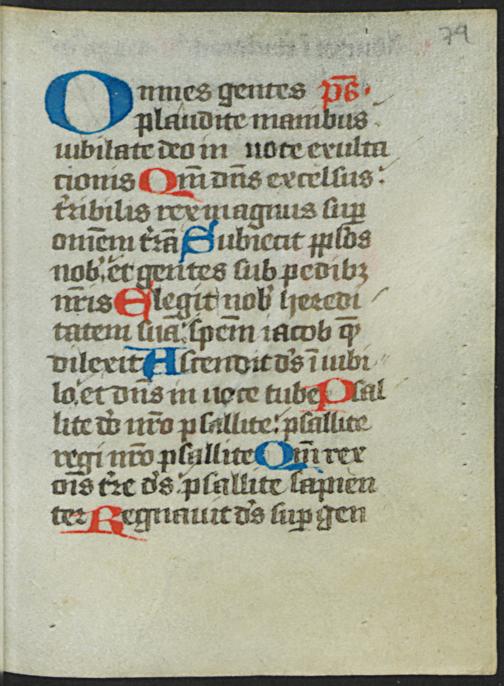 79
Omnes gentes ps̄.
plaudite manibus
iubilate deo in uoce exulta
cionis Qm̄ dn̄s excelsus:
t̄ribilis rex magnus suꝑ
om̄em t̄rā Subiecit ppl̄os
nob̄: et gentes sub pedibꝫ
nr̄is Elegit nob̄ heredi
tatem suā: spēm iacob q̄
dilexit Ascendit ds̄ ī iubi
lo: et dn̄s in uoce tube Psal
lite dō nr̄o psallite: psallite
regi nr̄o psallite Qm̄ rex
oīs t̄re ds̄: psallite sapien
ter Regnauit ds̄ suꝑ gen